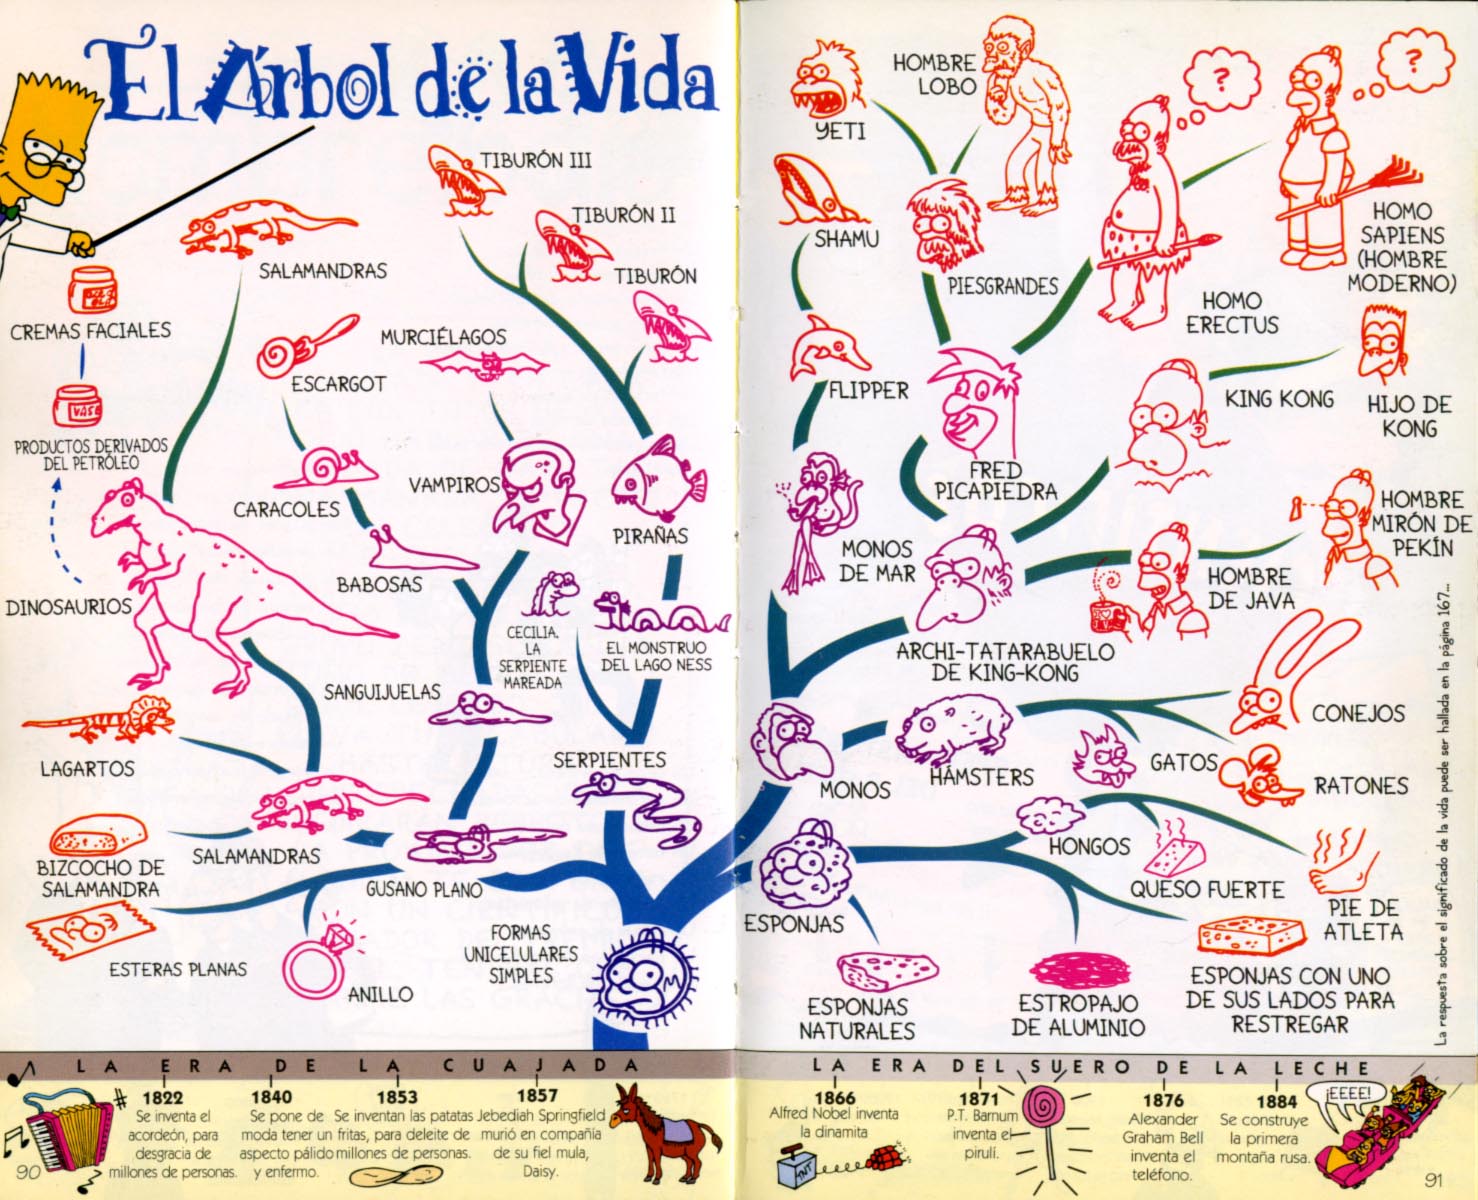 El Árbol de la Vida
CREMAS FACIALES
VASE
PRODUCTOS DERIVADOS
DEL PETRÓLEO
DINOSAURIOS
SALAMANDRAS
ESCARGOT
CARACOLES
BABOSAS
MURCIÉLAGOS
VAMPIROS
SANGUIJUELAS
TIBURÓN III
TIBURÓN II
TIBURÓN
PIRAÑAS
CECILIA.
LA
SERPIENTE
MAREADA
EL MONSTRUO
DEL LAGO NESS
SERPIENTES
LAGARTOS
SALAMANDRAS
BIZCOCHO DE
SALAMANDRA
GUSANO PLANO
ESTERAS PLANAS
ANILLO
FORMAS
UNICELULARES
SIMPLES
YETI
HOMBRE
LOBO
?
?
SHAMU
PIESGRANDES
HOMO
ERECTUS
HOMO
SAPIENS
(HOMBRE
MODERNO)
FLIPPER
FRED
PICAPIEDRA
KING KONG
HIJO DE
KONG
MONOS
DE MAR
ARCHI-TATARABUELO
DE KING-KONG
HOMBRE
DE JAVA
HOMBRE
MIRÓN DE
PEKÍN
MONOS
HÁMSTERS
CONEJOS
GATOS
RATONES
ESPONJAS
HONGOS
QUESO FUERTE
PIE DE
ATLETA
ESPONJAS
NATURALES
ESTROPAJO
DE ALUMINIO
ESPONJAS CON UNO
DE SUS LADOS PARA
RESTREGAR
La respuesta sobre el significado de la vida puede ser hallada en la página 167...
LA ERA DE LA CUAJADA
1822
Se inventa el
acordeón, para
desgracia de
millones de personas.
1840
Se pone de
moda tener un
aspecto pálido
y enfermo.
1853
Se inventan las patatas
fritas, para deleite de
millones de personas.
1857
Jebediah Springfield
murió en compañía
de su fiel mula,
Daisy.
90
LA ERA DEL SUERO DE LA LECHE
1866
Alfred Nobel inventa
la dinamita
TNT
1871
P.T. Barnum
inventa el
pirulí.
1876
Alexander
Graham Bell
inventa el
teléfono.
1884
Se construye
la primera
montaña rusa.
¡EEEE!
91